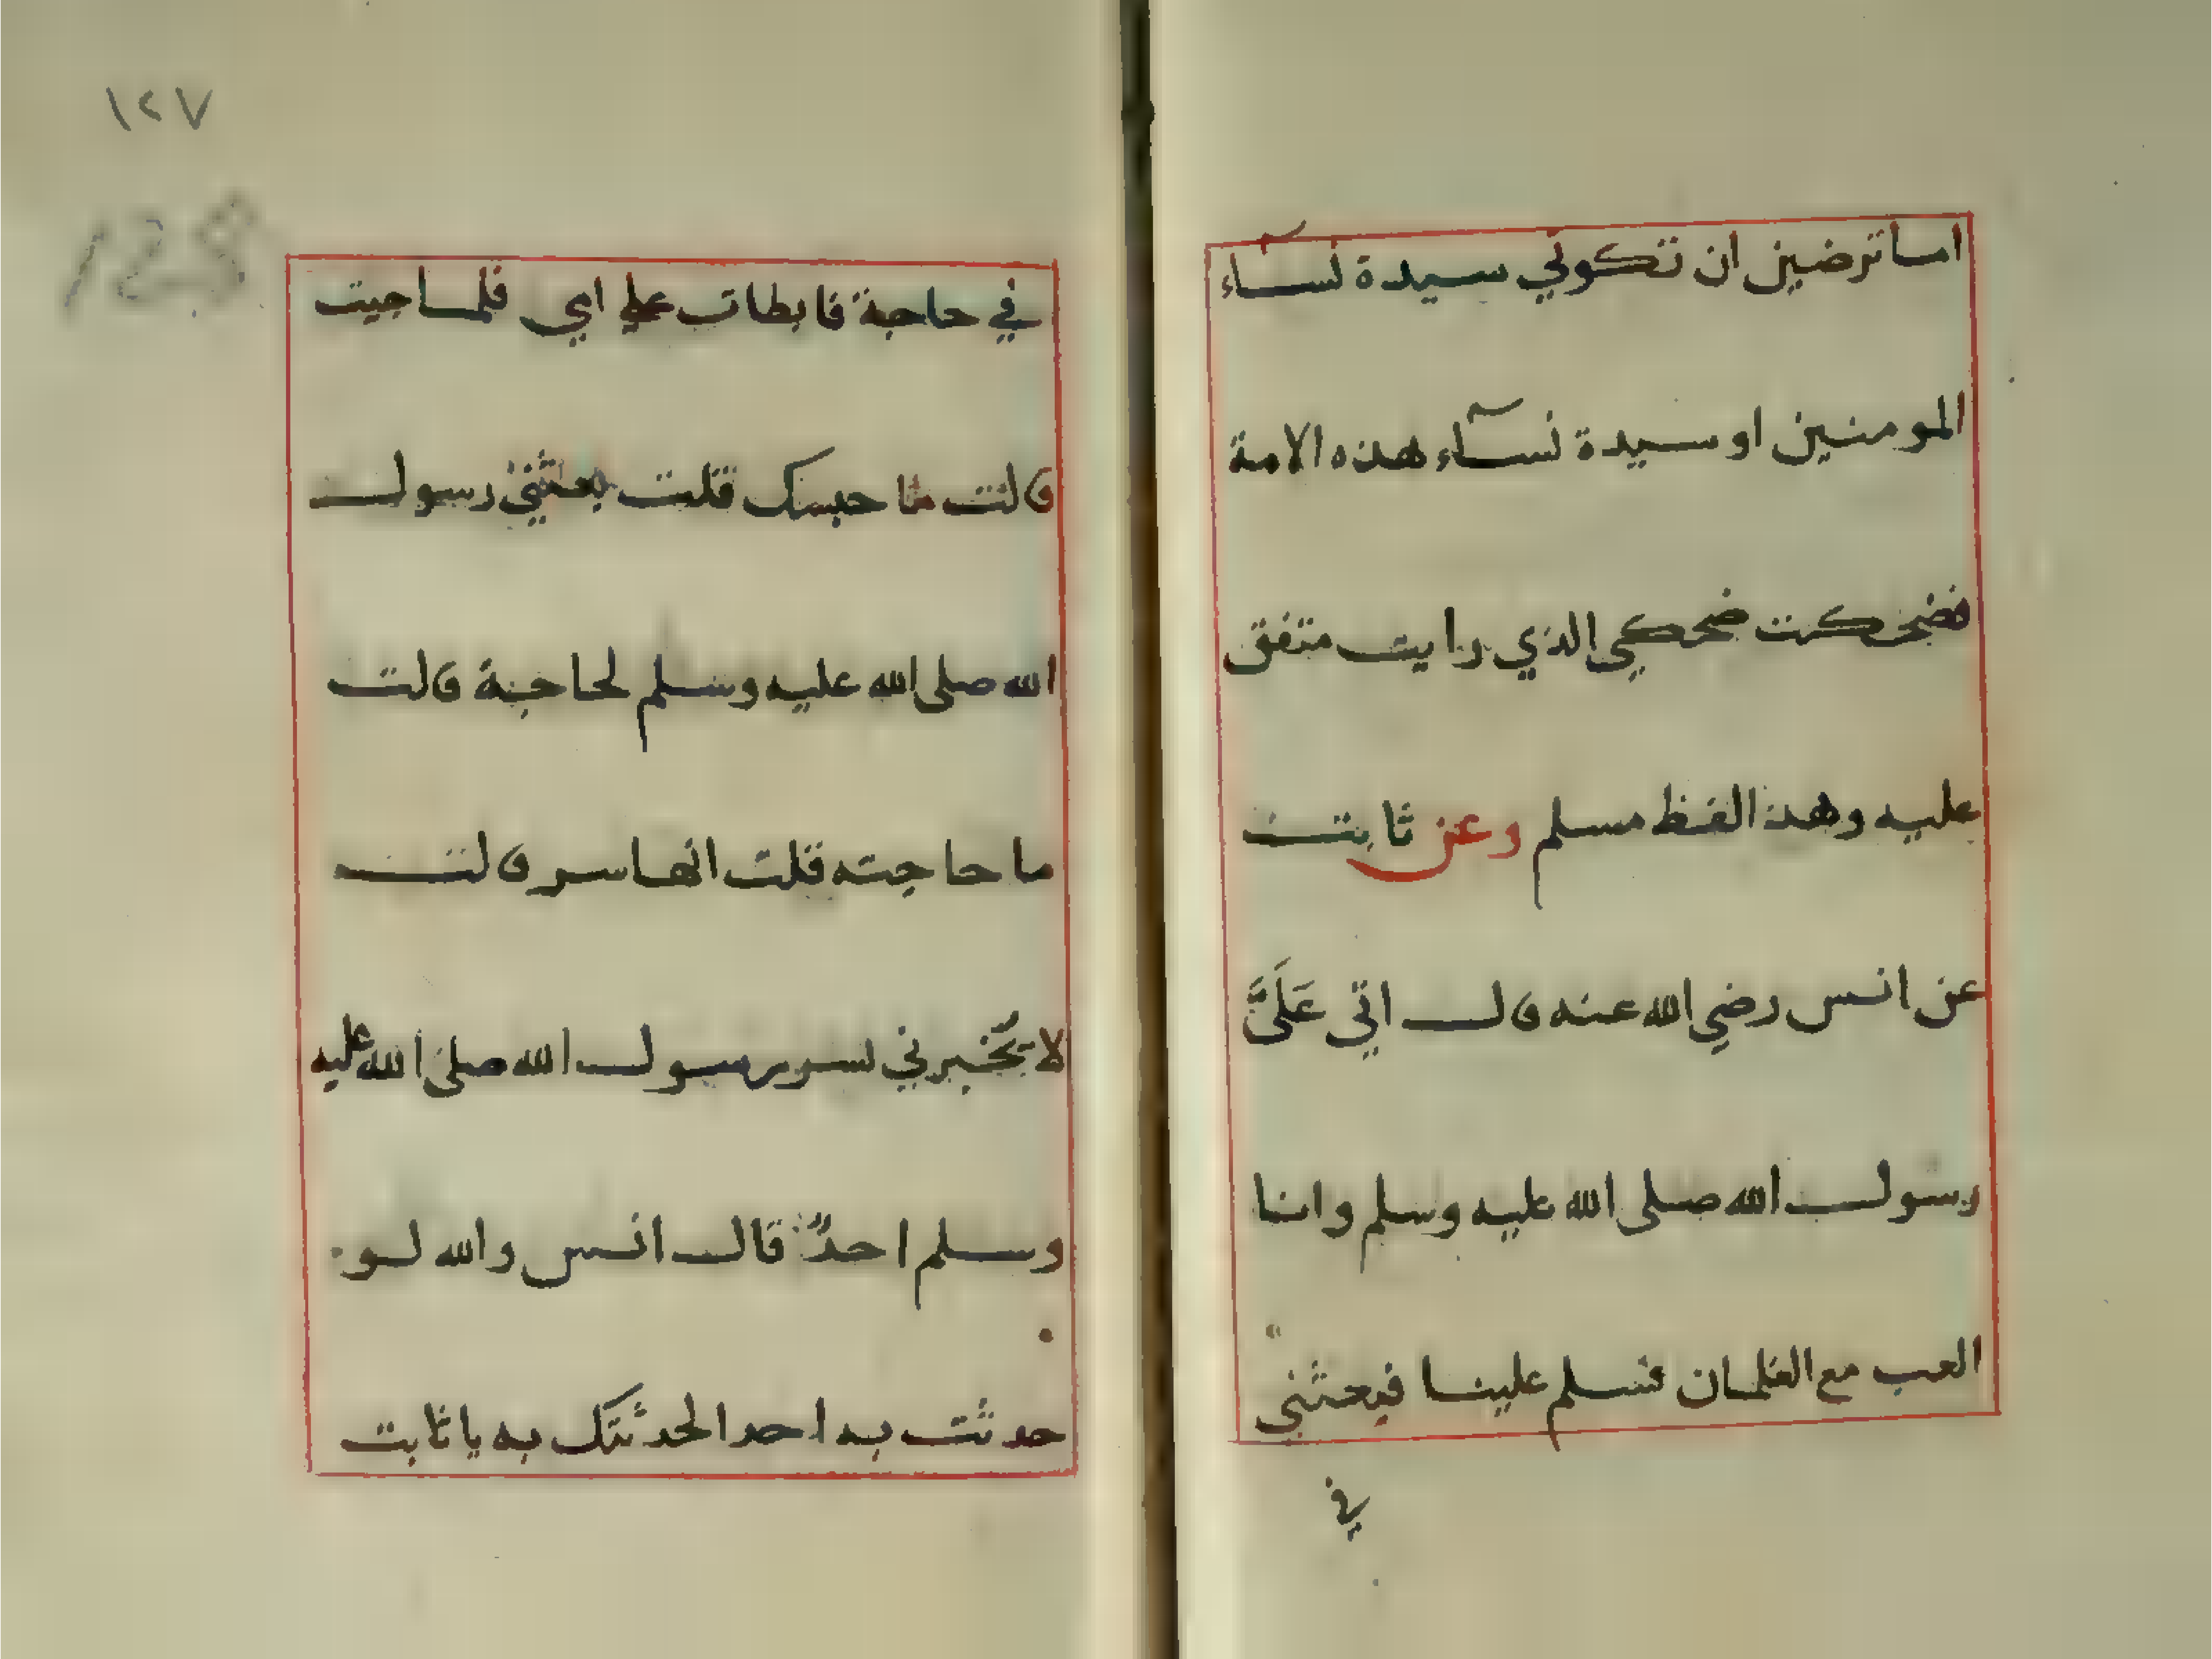 اما ترضين ان تكوني سيدة نسآء
المومنين او سيدة نسآء هذه الامة
فضحكت ضحكي الذي رايت متفق
عليه وهذا لفظ مسلم وعن ثابت
عن انس رضي الله عنه قال اتي عَلَىَّ
رسول الله صلى الله عليه وسلم وانا
العب مع الغلمان فسلم علينا فبعثني
في
١٢٧
128
في حاجة فابطات على امي فلما جيت
قالت ما حبسك قلت بعثني رسول
الله صلى الله عليه وسلم لحاجة قالت
ما حاجته قلت انها سر قالت
لا تخبرني بسر رسول الله صلى الله عليه
وسلم احدًا قال انس والله لو
حدثت به احدا لحدثتك به يا ثابت